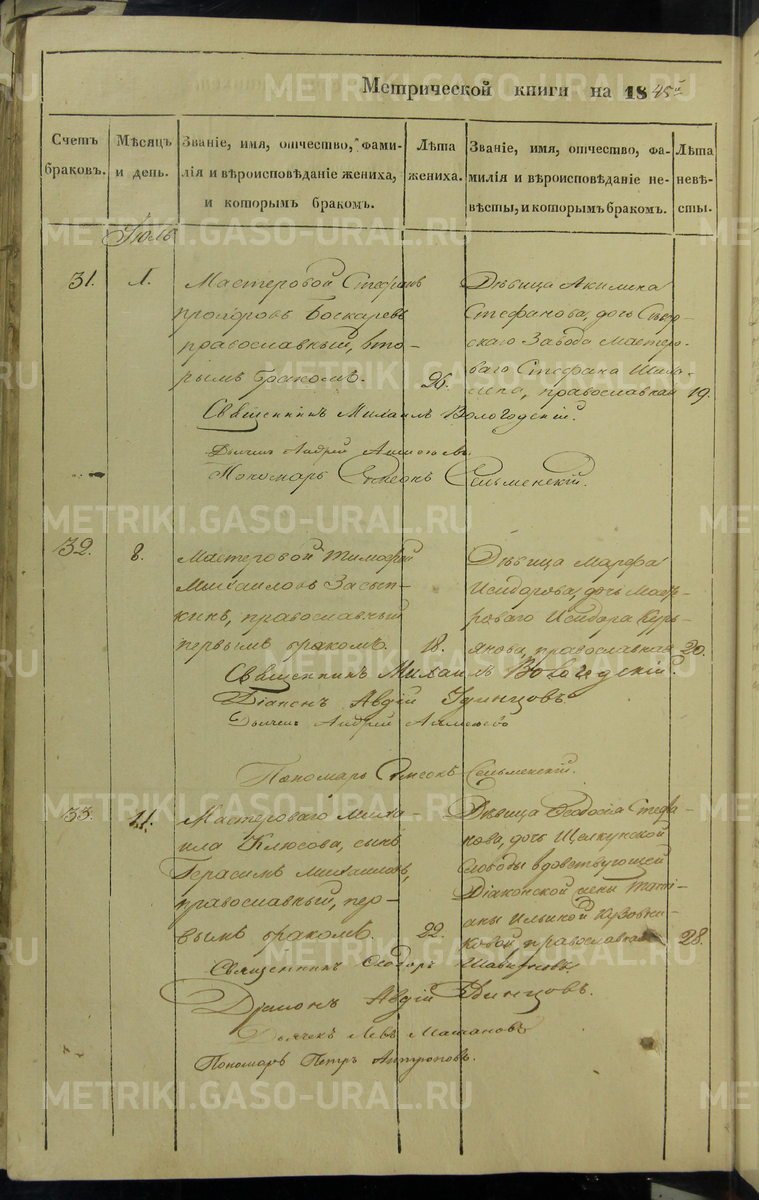 Метрической книги на 1845й
Счетъ браковъ.
Мѣсяцъ и день.
Званіе, имя, отчество, фами-
лія и вѣроисповѣданіе жениха,
и которымъ бракомъ.
Лѣта жениха.
Званіе, имя, отчество, фа-
милія и вѣроисповѣданіе не-
вѣсты, и которымъ бракомъ.
Лѣта невѣ-
сты.
Іюль
31.
1.
Мастеровой Стефанъ
Прохоровъ Боскаревъ
православный, вто-
рымъ бракомъ.
26.
Дѣвица Акилина
Стефанова, дочь Сысер-
скаго Завода Мастеро-
ваго Стефана
православная
19.
Священникъ Михаилъ Вологодскій.
Дьячекъ Андрей
Пономарь Симеонъ Сельменскій.
32.
8.
Мастеровой Тимофей
Михаиловъ Засып-
кинъ, православный
первымъ бракомъ.
18.
Дѣвица Марфа
Исидорова, дочь Масте-
роваго Исидора Курь-
янова, православная
20.
Священникъ Михаилъ Вологодскій.
Діаконъ Авдій Удинцовъ
Дьячекъ Андрей
Пономарь Симеонъ Сельменскій.
33.
11.
Мастероваго Миха-
ила Клюсова, сынъ
Герасимъ Михаиловъ,
православный, пер-
вымъ бракомъ.
22.
Дѣвица Ѳеодосія Стефа-
нова, дочь Щелкунской
Слободы вдовствующей
Діаконской жены Тати-
аны Ильиной Кузовни-
ковой, православная
28.
Священникъ Ѳеодоръ
Діаконъ Авдій Удинцовъ.
Дьячекъ Левъ
Пономарь Петръ Антроповъ.
METRIKI.GASO-URAL.RU